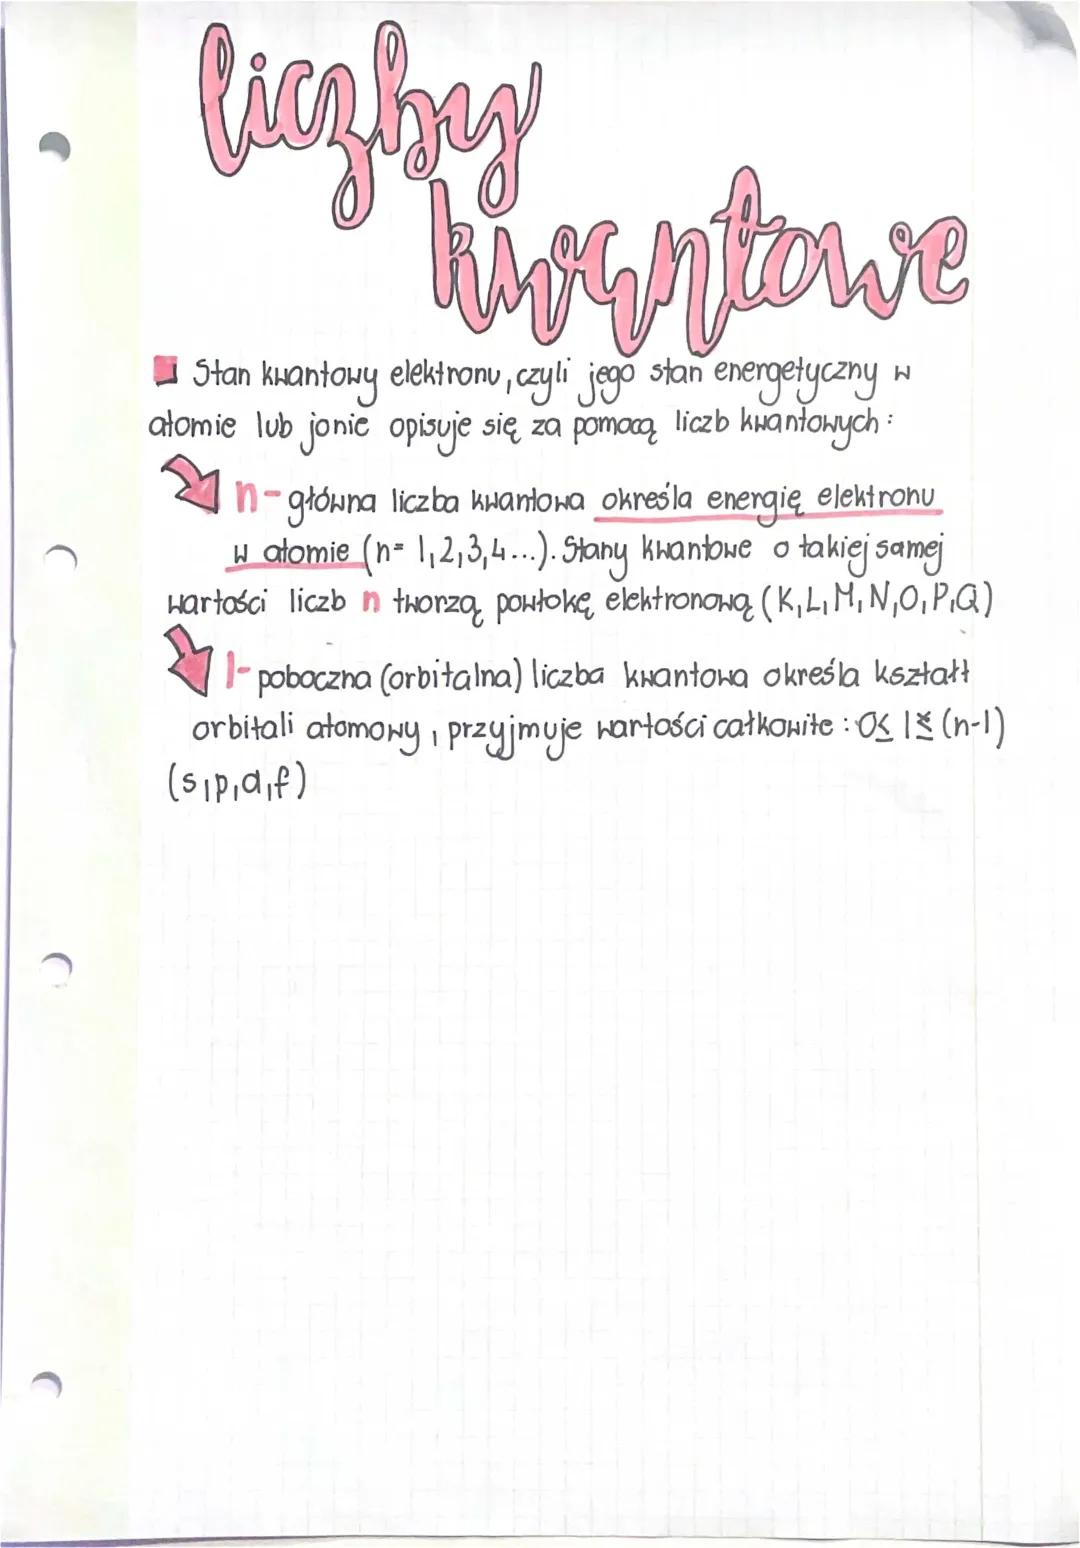 liczby
kwantowe
Stan kwantowy elektronu, czyli jego stan energetyczny w
atomie lub jonie opisuje się za pomocą liczb kwantowych:
n- główna liczba kwantowa określa energię elektronu
w atomie (n= 1,2,3,4...). Stany kwantowe o takiej samej
wartości liczb n tworzą powłokę elektronową (K,L,M,N,O,P,Q)
l- poboczna (orbitalna) liczba kwantowa określa kształt
orbitali atomowy, przyjmuje wartości całkowite: 0≤ l ≤ (n-1)
(s,p,d,f)